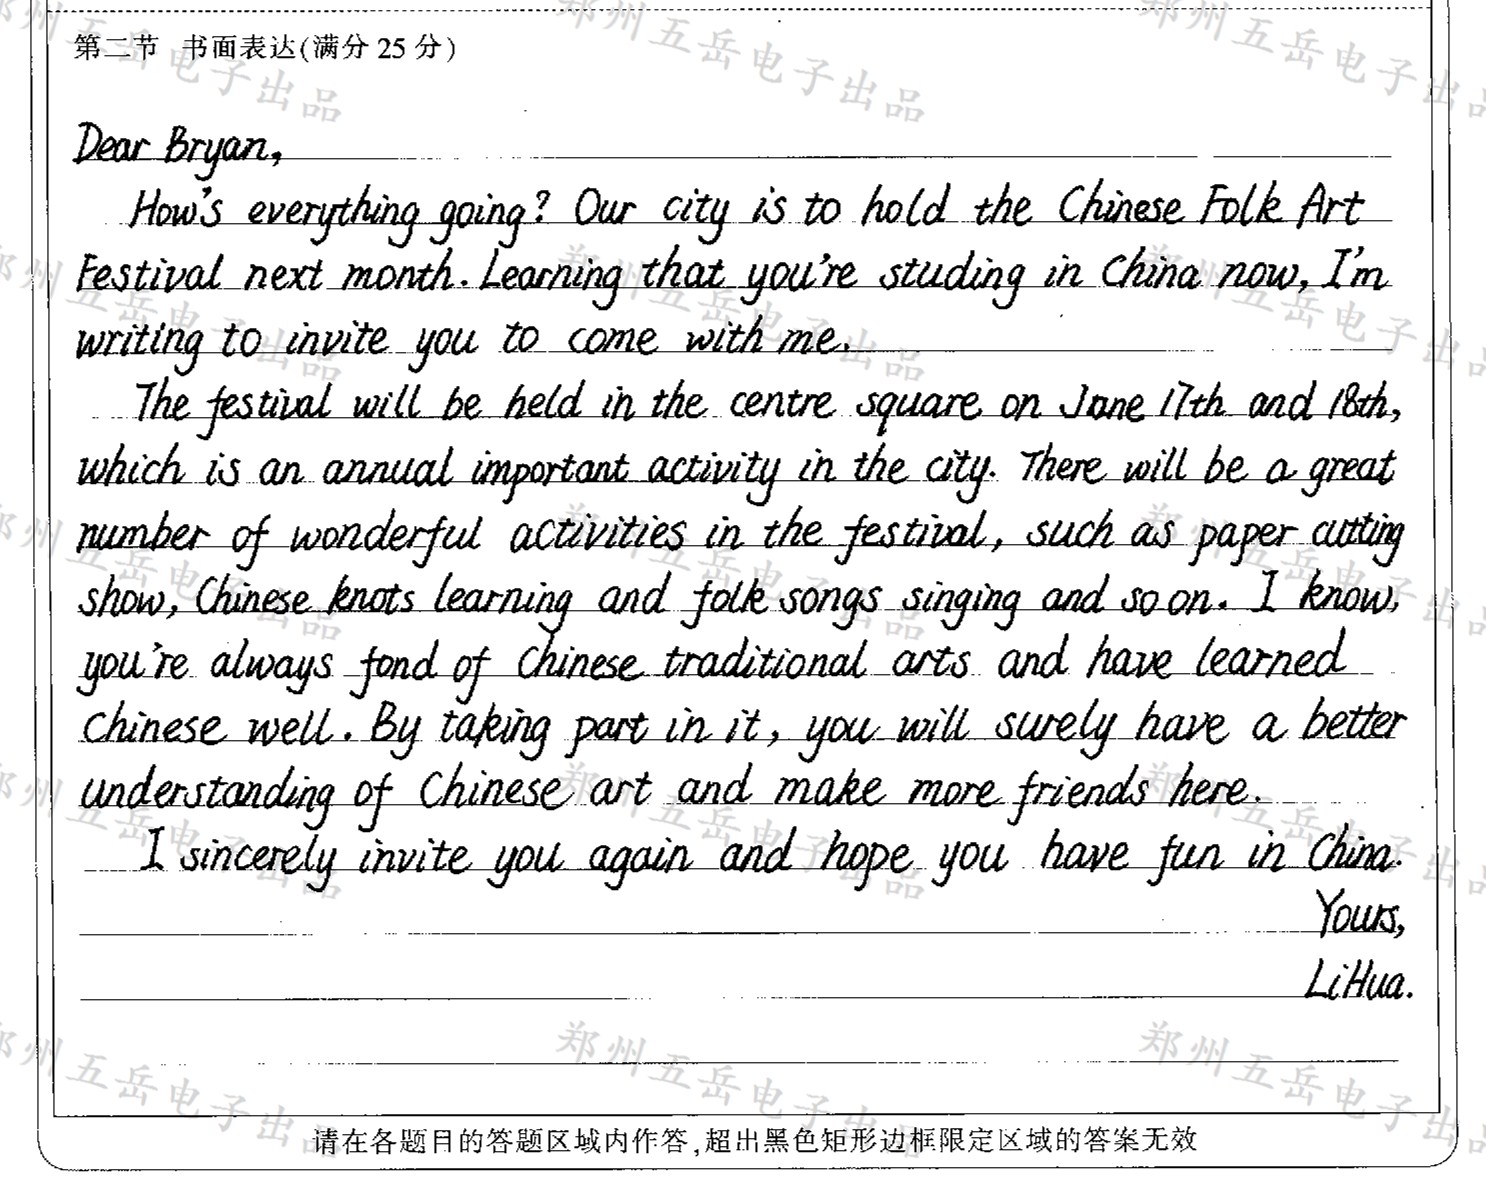 第二节 书面表达(满分 25 分)
Dear Bryan,
How's everything going? Our city is to hold the Chinese Folk Art
Festival next month. Learning that you're studing in China now, I'm
writing to invite you to come with me.
The festival will be held in the centre square on June 17th and 18th,
which is an annual important activity in the city. There will be a great
number of wonderful activities in the festival, such as paper cutting
show, Chinese knots learning and folk songs singing and so on. I know,
you're always fond of Chinese traditional arts and have learned
Chinese well. By taking part in it, you will surely have a better
understanding of Chinese art and make more friends here.
I sincerely invite you again and hope you have fun in China.
Yours,
LiHua.
请在各题目的答题区域内作答,超出黑色矩形边框限定区域的答案无效
郑州五岳电子出品